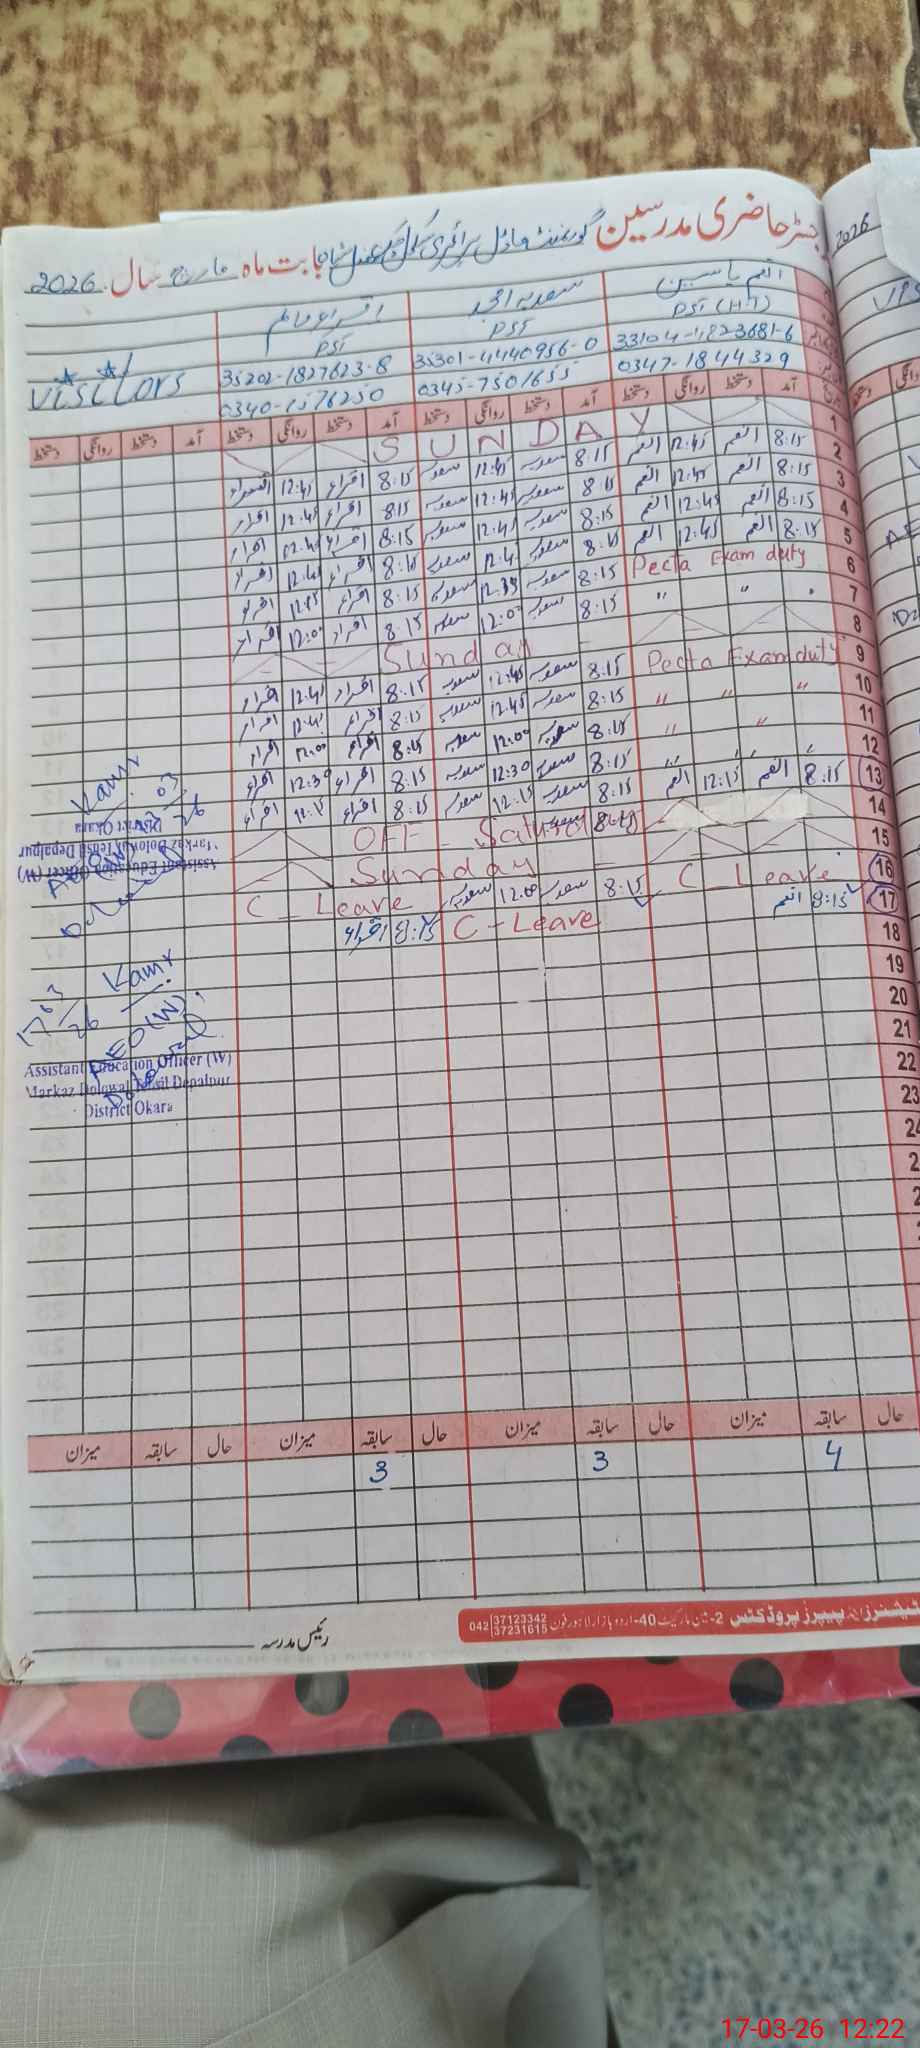 رجسٹر حاضری مدرسین گورنمنٹ ماڈل پرائمری سکول بابت ماہ مارچ سال 2026
2026
انعم یاسین سعدیہ امجد
PST (HT) PST PST
33104-1823681-6 35301-4440956-0 35202-1827623-8 Visitors
0347-1844329 0345-7501655 0340-1576250
آمد دستخط روانگی دستخط آمد دستخط روانگی دستخط آمد دستخط روانگی دستخط آمد دستخط روانگی دستخط
1 SUNDAY
2 8:15 انعم 12:45 انعم 8:15 سعدیہ 12:45 سعدیہ 8:15 اقراء 12:45
3 8:15 انعم 12:45 انعم 8:15 سعدیہ 12:45 سعدیہ 8:15 اقراء 12:45 اقراء
4 8:15 انعم 12:45 انعم 8:15 سعدیہ 12:45 سعدیہ 8:15 اقراء 12:45 اقراء
5 8:15 انعم 12:45 انعم 8:15 سعدیہ 12:45 سعدیہ 8:15 اقراء 12:45 اقراء
6 Pecta Exam duty 8:15 سعدیہ سعدیہ 8:15 اقراء اقراء
7 " " " 8:15 سعدیہ 12:00 سعدیہ 8:15 اقراء 12:00 اقراء
8 Sunday
9 Pecta Exam duty 8:15 سعدیہ 12:45 سعدیہ 8:15 اقراء 12:45 اقراء
10 " " " 8:15 سعدیہ 12:45 سعدیہ 8:15 اقراء اقراء
11 " " 8:15 سعدیہ 12:00 سعدیہ 8:15 اقراء 12:00 اقراء
12 " " " " 8:15 سعدیہ 12:30 سعدیہ 8:15 اقراء 12:30 اقراء
13 8:15 انعم 12:15 انعم 8:15 سعدیہ 12:15 سعدیہ 8:15 اقراء 12:15 اقراء
14 OFF - Saturday
15 Sunday
16 C_Leave 8:15 سعدیہ 12:00 سعدیہ C_Leave
17 8:15 انعم C-Leave 8:15 اقراء
18
19
20
21
22
23
24
2
2
2
Assistant Education Officer (W)
Markaz Dolowal Tehsil Depalpur
District Okara
17/03/26
AEO(W)
Assistant Education Officer (W)
Markaz Dolowal Tehsil Depalpur
District Okara
حال سابقہ میزان حال سابقہ میزان حال سابقہ میزان حال سابقہ میزان
4 3 3
پیپرز پروڈکٹس 40-اردو بازار لاہور فون 042 37123342 37231615
رئیس مدرسہ
17-03-26 12:22